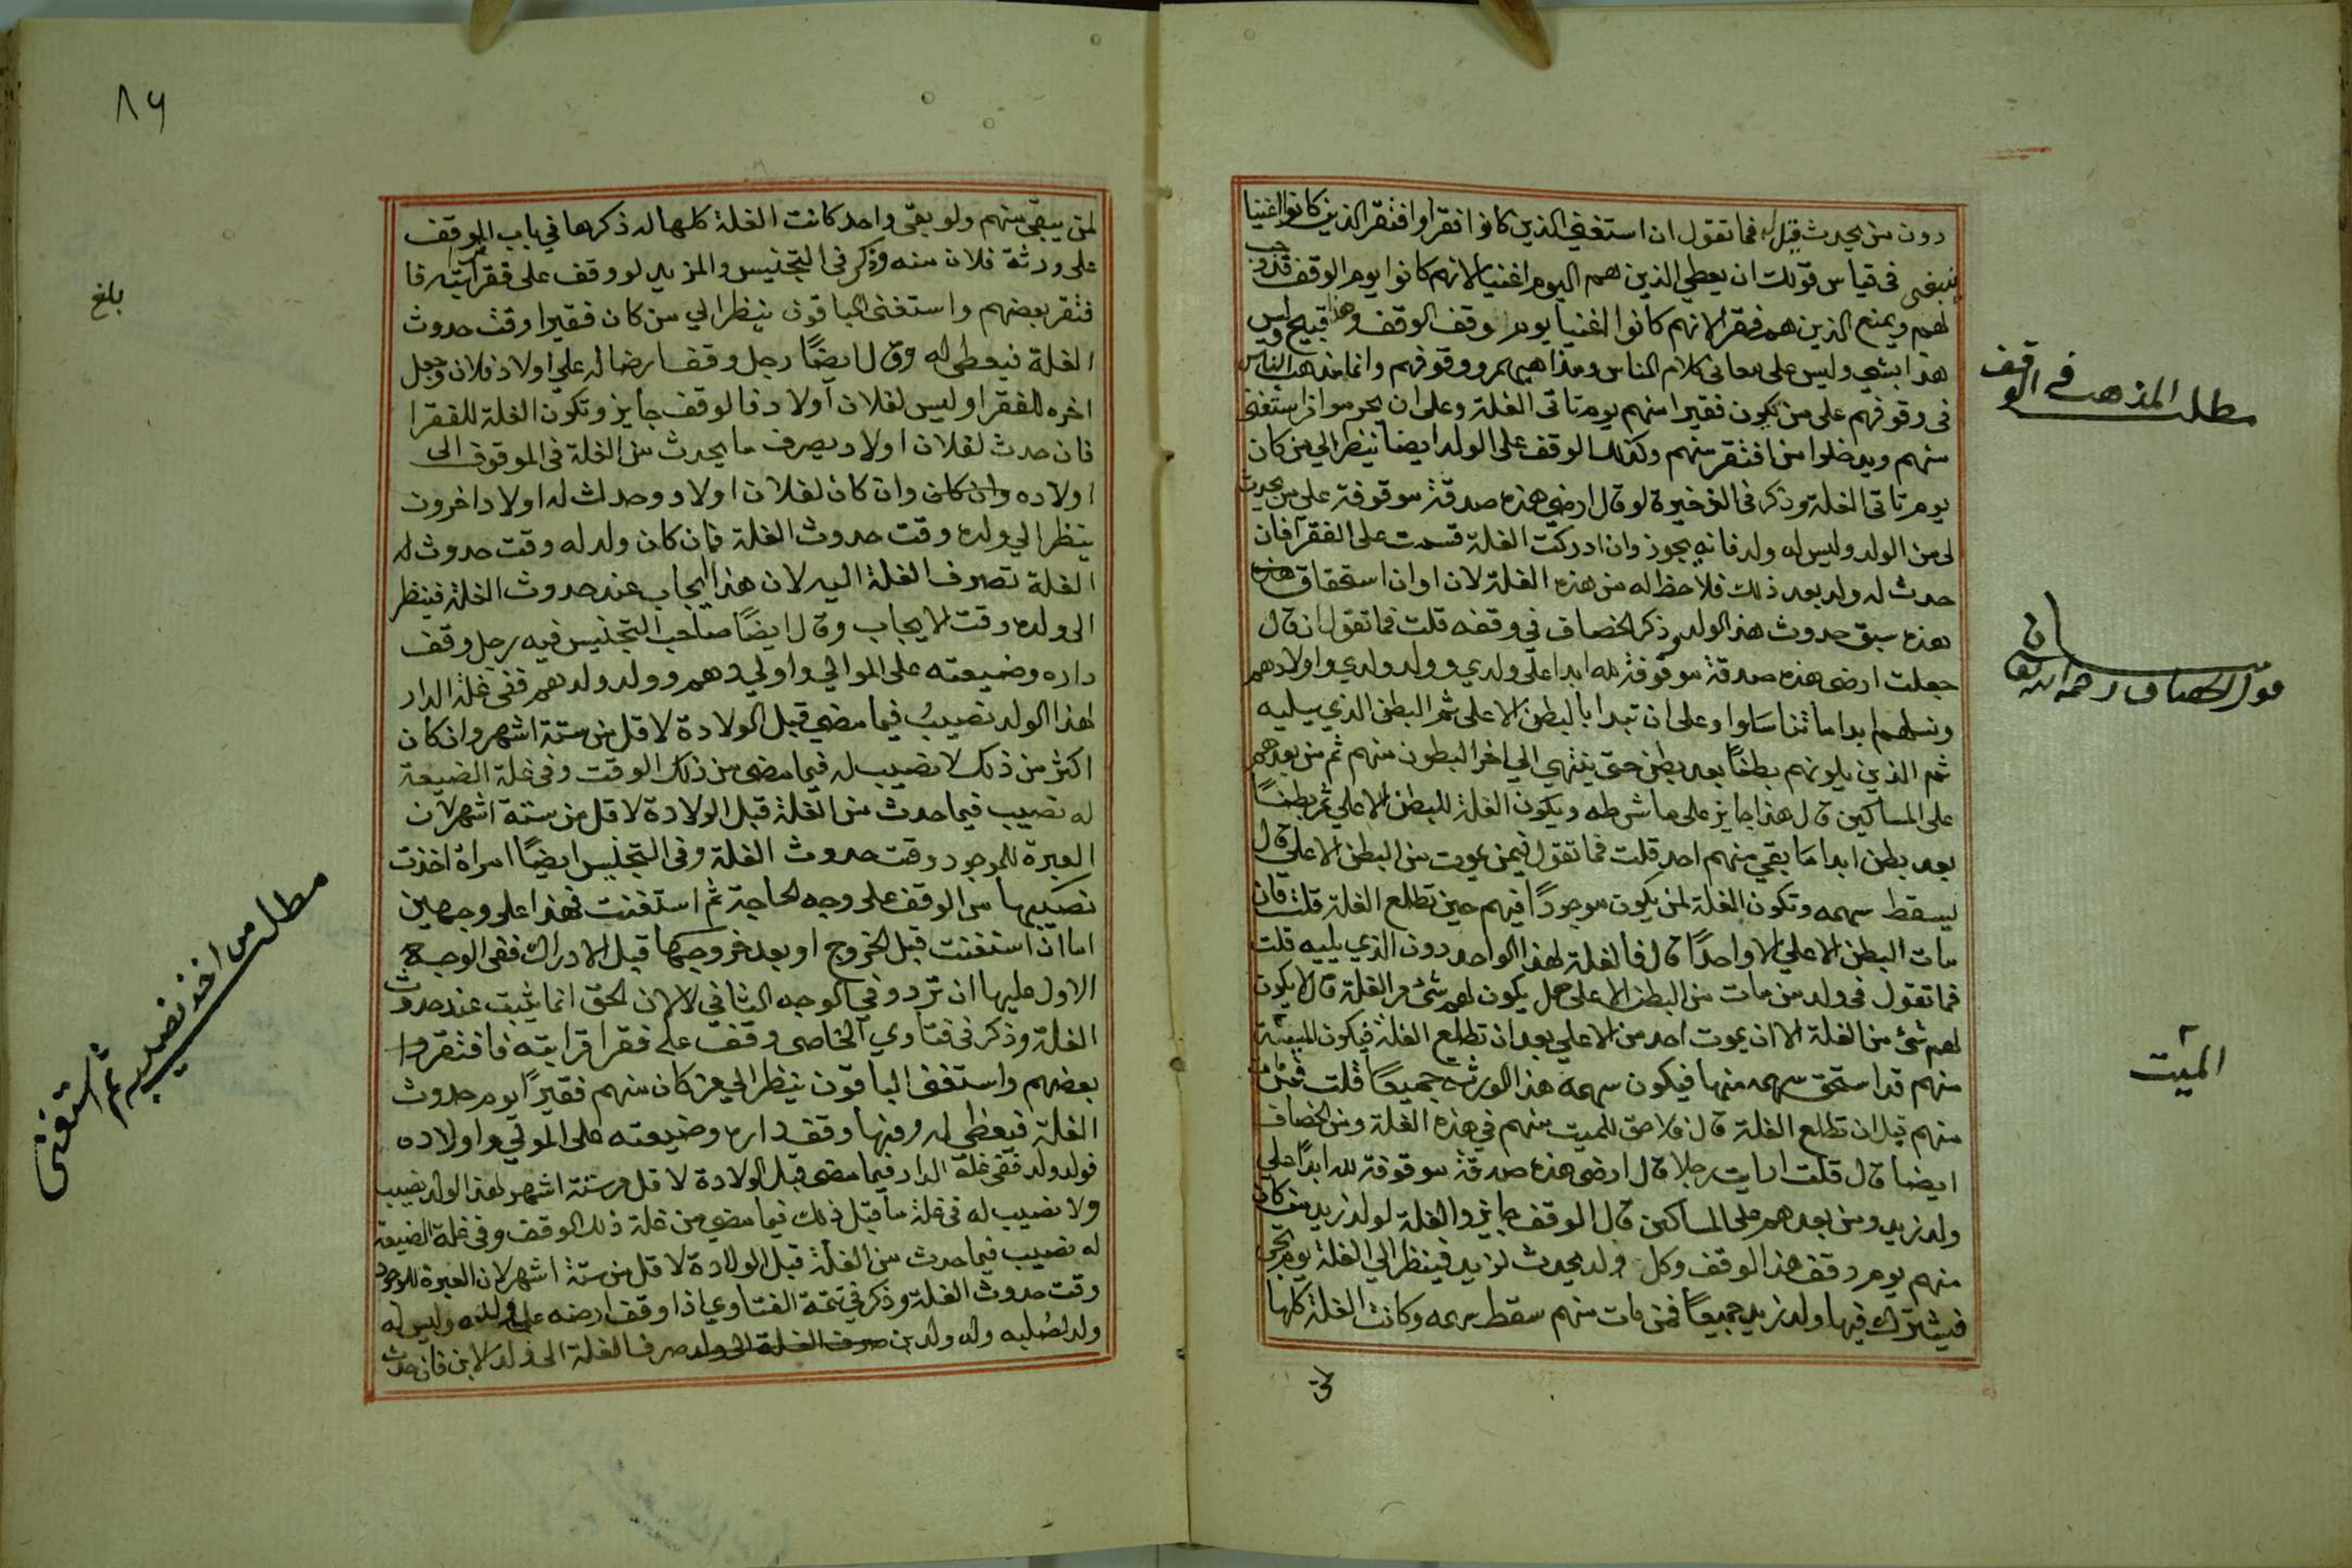 دون من يحدث قبل له فما تقول ان استغنى الذين كانوا فقرا وافتقر الذين كانوا اغنيا
ينبغى فى قياس قولك ان يعطي الذين هم اليوم اغنيا لانهم كانوا يوم الوقف
لهم ويمنع الذين هم فقرا لانهم كانوا اغنيا يوم وقف الوقف وهذا قبيح وليس
هذا بشي وليس على معانى كلام الناس ومذاهبهم ووقوفهم وانما مذاهب الناس
فى وقوفهم على من يكون فقيرا منهم يوم تاتى الغلة وعلى ان يحرموا من استغنى
منهم ويدخلوا من افتقر منهم وكذلك الوقف على الولد ايضا ينظر الي من كان
يوم تاتى الغلة وذكر فى الذخيرة لو قال ارضى هذه صدقة موقوفة علي من يحدث
لى من الولد وليس له ولد فانه يجوز وان ادركت الغلة قسمت على الفقرا فان
حدث له ولد بعد ذلك فلا حظ له من هذه الغلة لان اوان استحقاق هذه
هذه سبق حدوث هذا الولد وذكر الخصاف في وقفه قلت فما تقول ان قال
جعلت ارضى هذه صدقة موقوفة لله ابدا على ولدي وولد ولدي واولادهم
ونسلهم ابدا ما تناسلوا وعلى ان تبدا بالبطن الاعلى ثم البطن الذي يليه
ثم الذين يلونهم بطنا بعد بطن حتى ينتهي الي اخر البطون منهم ثم من بعدهم
على المساكين قال هذا جايز على ما شرطه ويكون الغلة للبطن الاعلي ثم بطنا
بعد بطن ابدا ما بقي منهم احد قلت فما تقول فيمن يموت من البطن الاعلي قال
يسقط سهمه وتكون الغلة لمن يكون موجودا فيهم حين تطلع الغلة قلت فان
مات البطن الاعلي الا واحدا قال فالغلة لهذا الواحد دون الذي يليه قلت
فما تقول فى ولد من مات من البطن الاعلى هل يكون لهم شئ من الغلة قال لا يكون
لهم شئ من الغلة الا ان يموت احد من الاعلي بعد ان تطلع الغلة فيكون الميت
منهم قد استحق سهمه منها فيكون سهمه هذا لورثته جميعا قلت فمن مات
منهم قبل ان تطلع الغلة قال فلا حق للميت منهم في هذه الغلة ومن الخصاف
ايضا قال قلت ارايت رجلا قال ارضى هذه صدقة موقوفة لله ابدا على
ولد زيد ومن بعدهم على المساكين قال الوقف جايز والغلة لولد زيد من كان
منهم يوم وقف هذا الوقف وكل ولد يحدث لزيد فينظر الي الغلة يوم تجى
فيشترك فيها ولد زيد جميعا فمن مات منهم سقط سهمه وكانت الغلة كلها
مطلب المذهب فى الوقف
الميت
٨٦
لمن يبقى منهم ولو بقى واحد كانت الغلة كلها له ذكرها في باب الموقف
على ورثة فلان منه وذكر فى التجنيس والمزيد لو وقف على فقرا قرابته فا
فتقر بعضهم واستغنى الباقون ينظر الي من كان فقيرا وقت حدوث
الغلة فيعطى له وقال ايضا رجل وقف ارضا له علي اولاد فلان وجعل
اخره للفقرا وليس لفلان اولاد فالوقف جايز وتكون الغلة للفقرا
فان حدث لفلان اولاد يصرف ما يحدث من الغلة فى الموقوف الى
اولاده وان كان وان كان لفلان اولاد وحدث له اولاد اخرون
ينظر الي ولده وقت حدوث الغلة فان كان ولد له وقت حدوث له
الغلة تصرف الغلة اليه لان هذا ايجاب عند حدوث الغلة فينظر
الى ولده وقت الايجاب وقال ايضا صاحب التجنيس فيه رجل وقف
داره وضيعته على الموالي واولادهم وولد ولدهم ففى غلة الدار
لهذا الولد نصيب فيما مضي قبل الولادة لاقل من ستة اشهر وان كان
اكثر من ذلك لا نصيب له فيما مضى من ذلك الوقت وفى غلة الضيعة
له نصيب فيما حدث من الغلة قبل الولادة لاقل من ستة اشهر لان
العبرة للموجود وقت حدوث الغلة وفى التجنيس ايضا امراة اخذت
نصيبها من الوقف على وجه الحاجة ثم استغنت فهذا على وجهين
اما ان استغنت قبل الخروج او بعد خروجها قبل الادراك ففى الوجه
الاول عليها ان ترد وفي الوجه الثاني لا لان الحق انما يثبت عند حدوث
الغلة وذكر فى فتاوي الخاصى وقف على فقرا قرابته فافتقروا
بعضهم واستغنى الباقون ينظر الي من كان منهم فقيرا يوم حدوث
الغلة فيعطى له ومنها وقف داره وضيعته على الموالي واولاده
فولد ولد ففى غلة الدار فيما مضى قبل الولادة لاقل من ستة اشهر لهذا الولد نصيب
ولا نصيب له فى غلة ما قبل ذلك فيما مضي من غلة ذلك الوقف وفى غلة الضيعة
له نصيب فيما حدث من الغلة قبل الولادة لاقل من ستة اشهر لان العبرة للموجود
وقت حدوث الغلة وذكر في تتمة الفتاوي اذا وقف ارضه على ولده وليس له
ولد لصلبه وله ولد ابن صرف الغلة الى ولد صرف الغلة الى ولد الابن فان حدث
بلغ
مطلب من اخذ نصيبه ثم استغنى